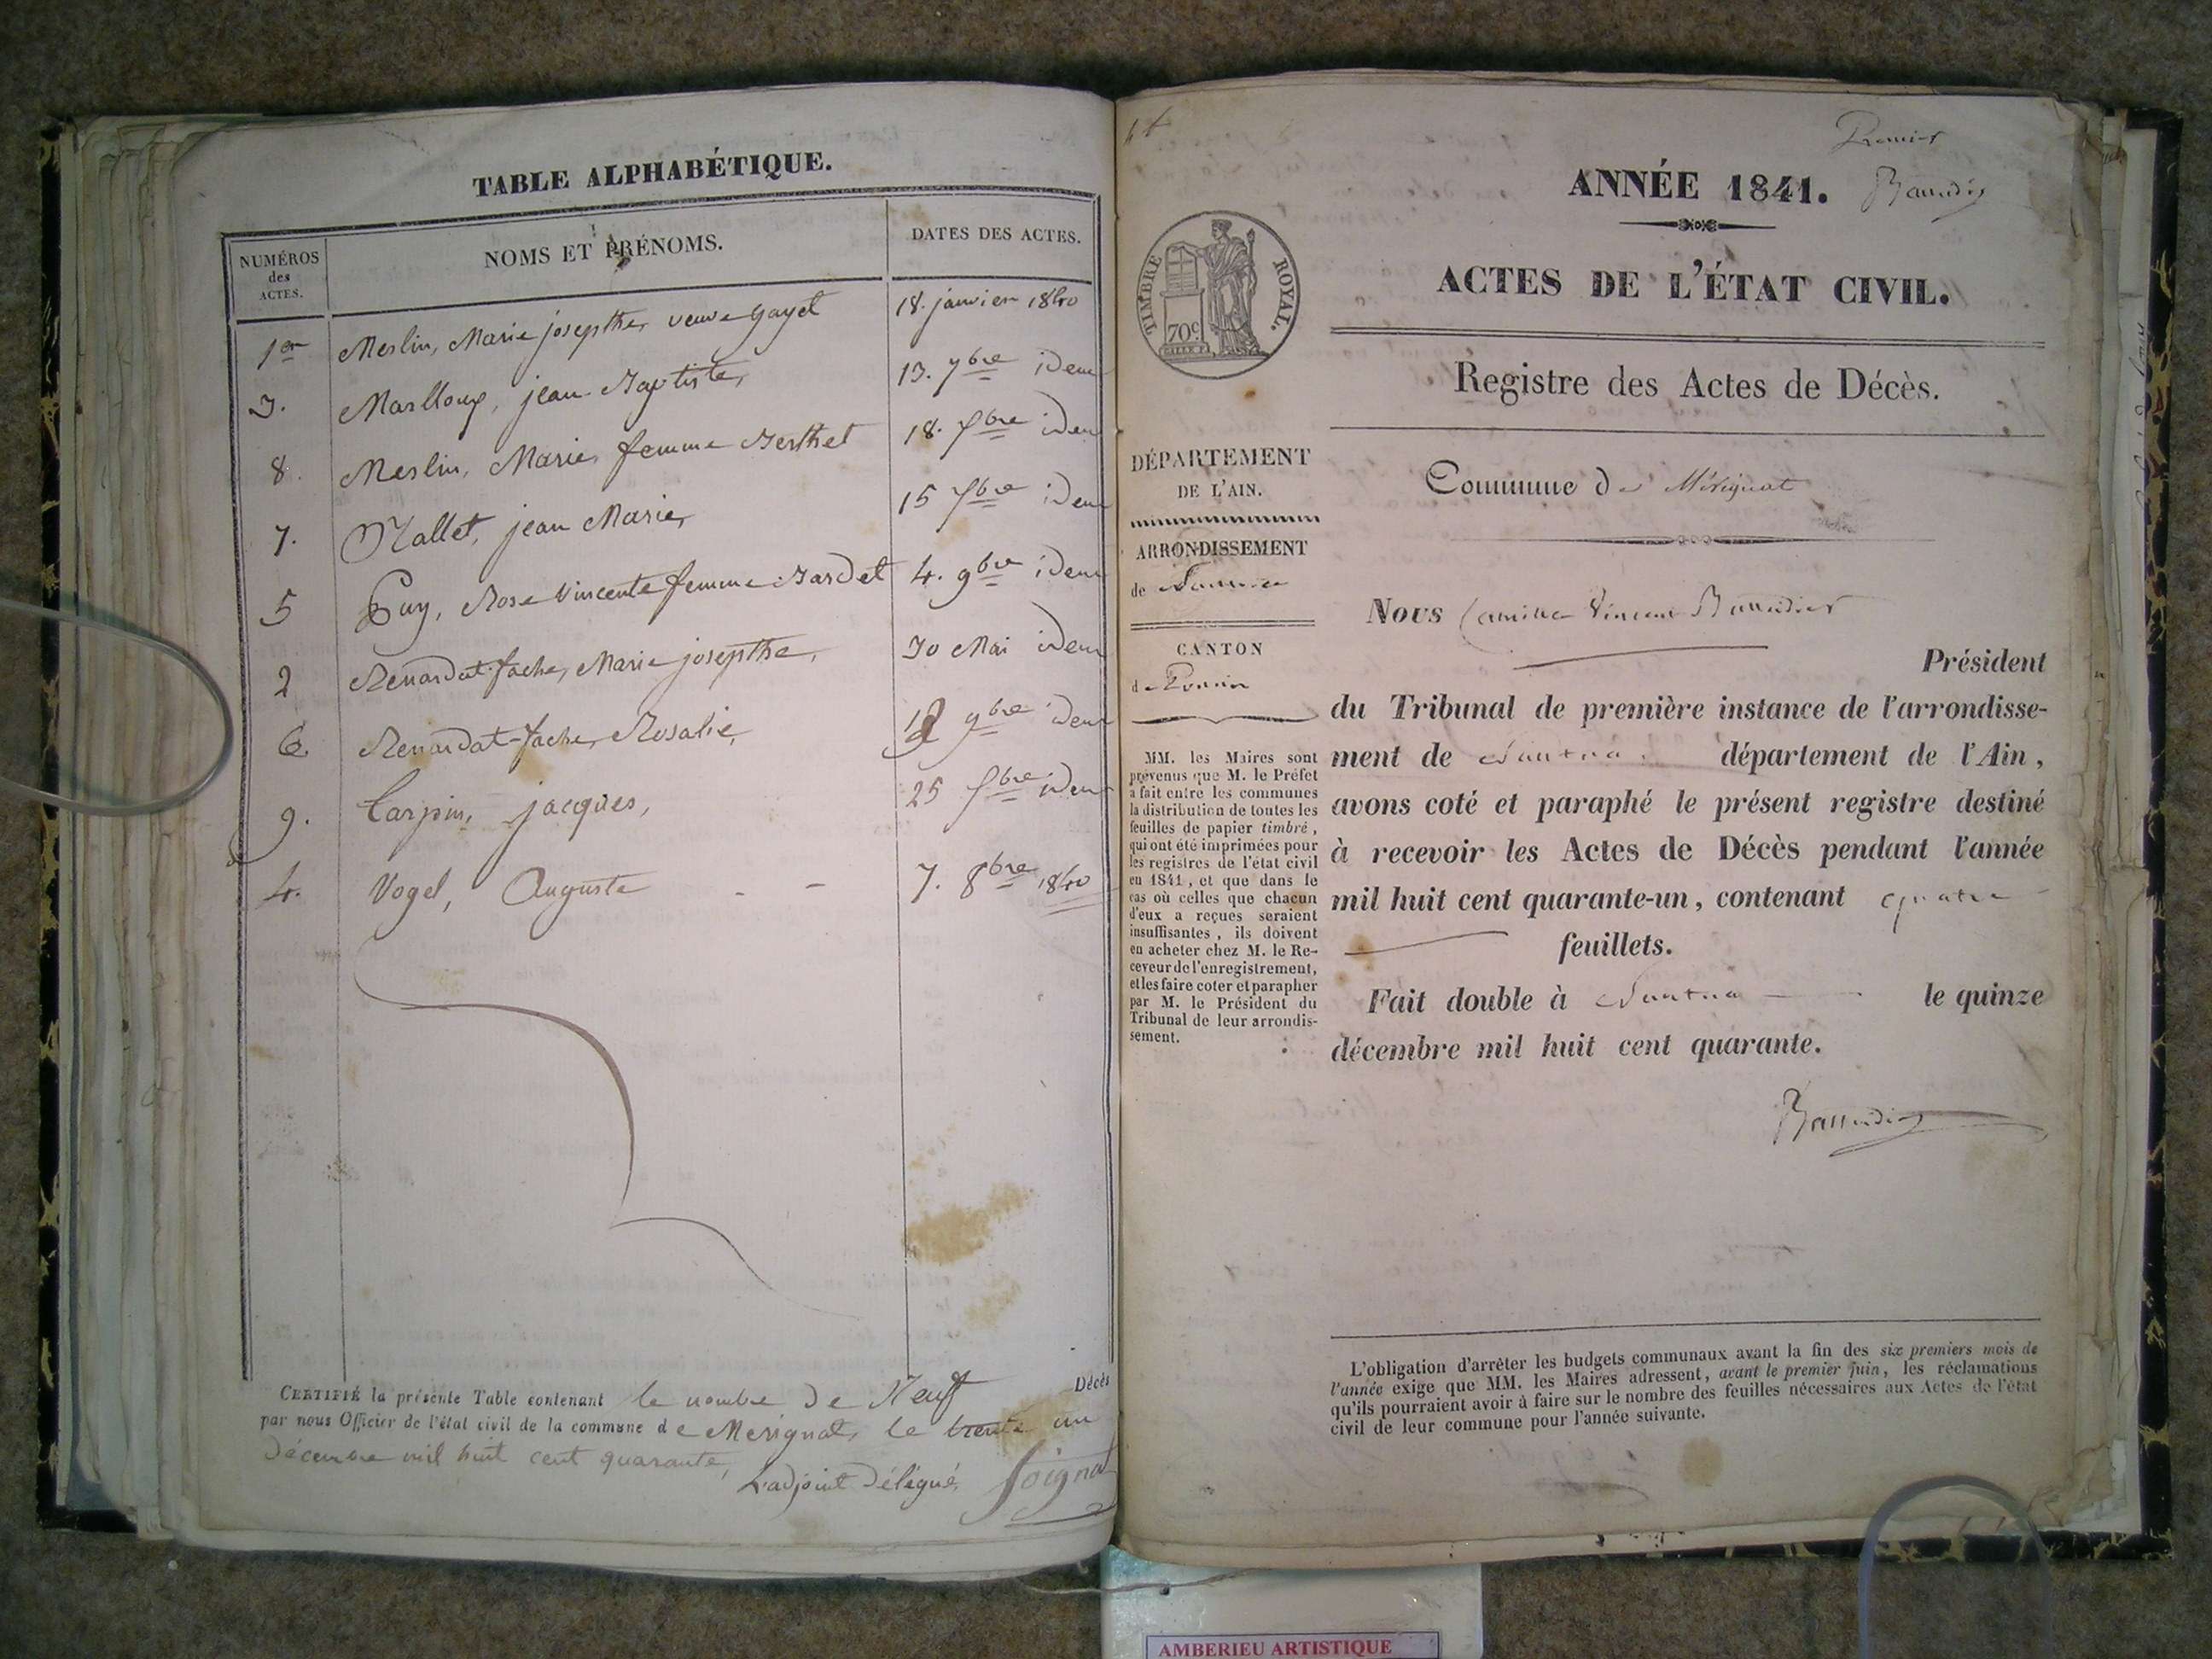 TABLE ALPHABÉTIQUE.
NUMÉROS
des
ACTES.
NOMS ET PRÉNOMS.
DATES DES ACTES.
1er Merlin, Marie josepthe, veuve gayet 18. janvier 1840
3. jean Baptiste, 13. 7bre idem
8. Merlin, Marie, femme Berthet 18. Xbre idem
7. Nallet, jean Marie, 15 Xbre idem
5 Puy, Rose Vincente femme Bardet 4. 9bre idem
2 Renardat-fache, Marie josepthe, 30 Mai idem
6. Renardat-fache, Rosalie, 9bre idem
9. Tarpin, jacques, 25 Xbre idem
4. Vogel, Auguste - - 7. 8bre 1840
CERTIFIÉ la présente Table contenant le nombre de Neuf Décès
par nous Officier de l'état civil de la commune de Merignat, le trente un
décembre mil huit cent quarante,
L'adjoint délégué,
Premier
ANNÉE 1841.
ACTES DE L'ÉTAT CIVIL.
TIMBRE ROYAL.
70c
Registre des Actes de Décès.
DÉPARTEMENT
DE L'AIN.
ARRONDISSEMENT
de Nantua
CANTON
de Poncin
MM. les Maires sont
prévenus que M. le Préfet
a fait entre les communes
la distribution de toutes les
feuilles de papier timbré,
qui ont été imprimées pour
les registres de l'état civil
en 1841, et que dans le
cas où celles que chacun
d'eux a reçues seraient
insuffisantes, ils doivent
en acheter chez M. le Re-
ceveur de l'enregistrement,
et les faire coter et parapher
par M. le Président du
Tribunal de leur arrondis-
sement.
Commune de Mérignat
Nous Camille Vincent Baudier
Président
du Tribunal de première instance de l'arrondisse-
ment de Nantua, département de l'Ain,
avons coté et paraphé le présent registre destiné
à recevoir les Actes de Décès pendant l'année
mil huit cent quarante-un, contenant quatre
feuillets.
Fait double à Nantua le quinze
décembre mil huit cent quarante.
L'obligation d'arrêter les budgets communaux avant la fin des six premiers mois de
l'année exige que MM. les Maires adressent, avant le premier juin, les réclamations
qu'ils pourraient avoir à faire sur le nombre des feuilles nécessaires aux Actes de l'état
civil de leur commune pour l'année suivante.
AMBERIEU ARTISTIQUE